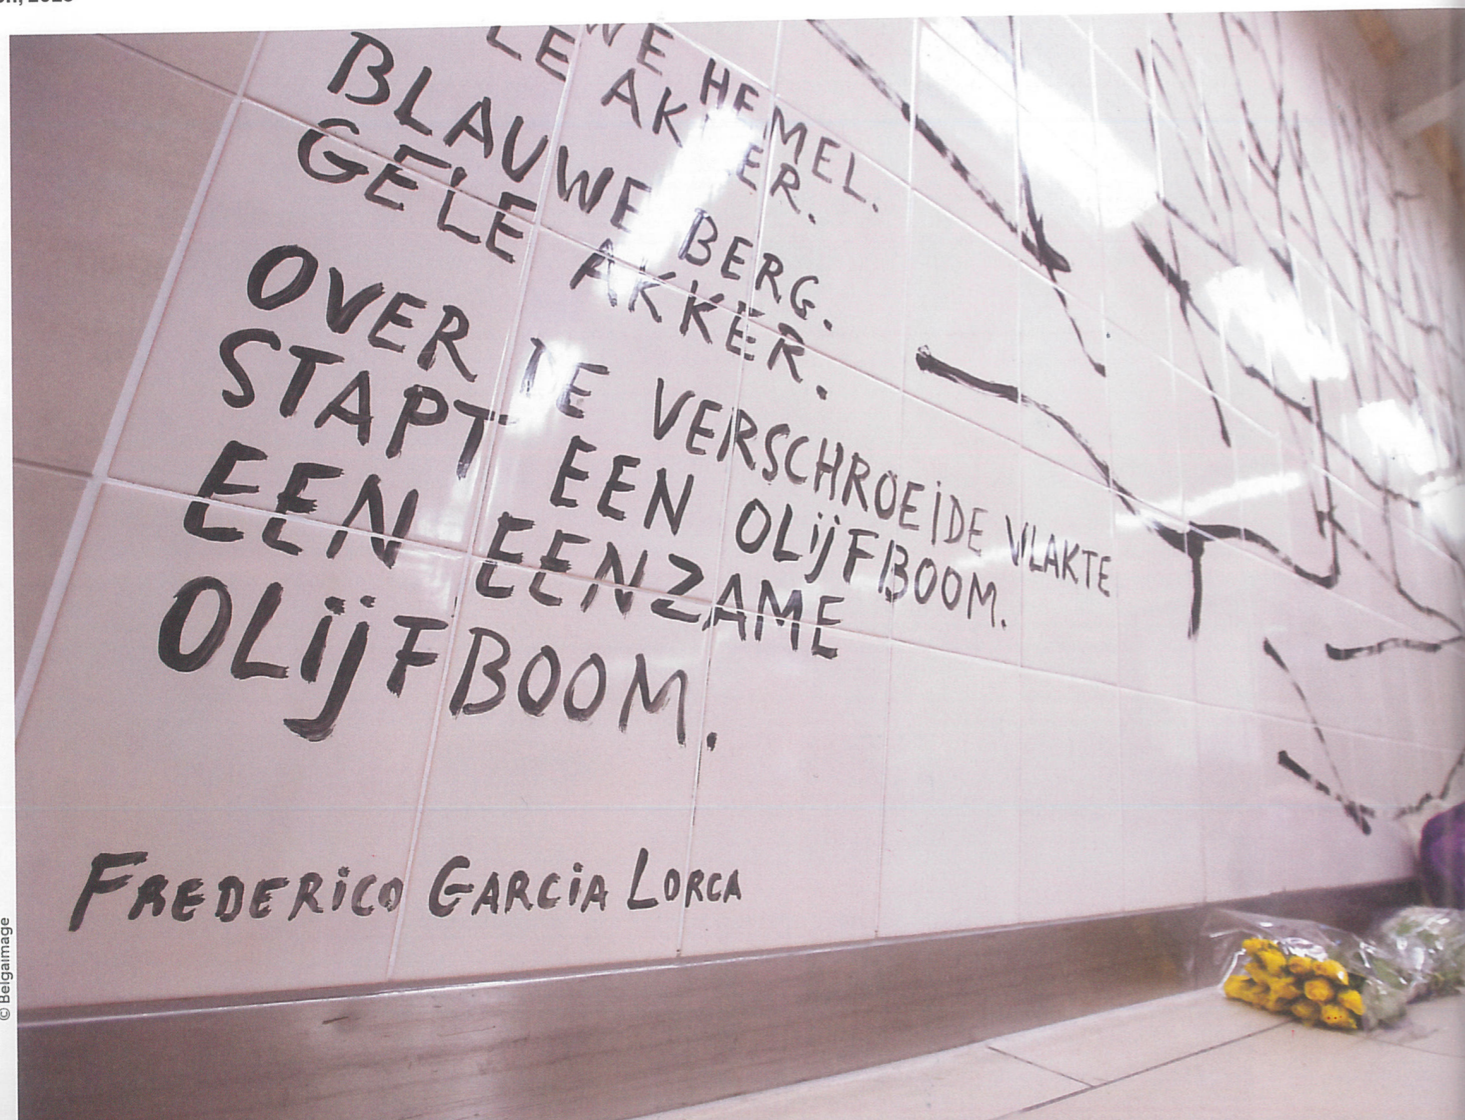 WE HEMEL.
LE AKKER.
BLAUWE BERG.
GELE AKKER.
OVER DE VERSCHROEIDE VLAKTE
STAPT EEN OLIJFBOOM.
EEN EENZAME
OLIJFBOOM.
FREDERICO GARCIA LORCA
© Belgaimage